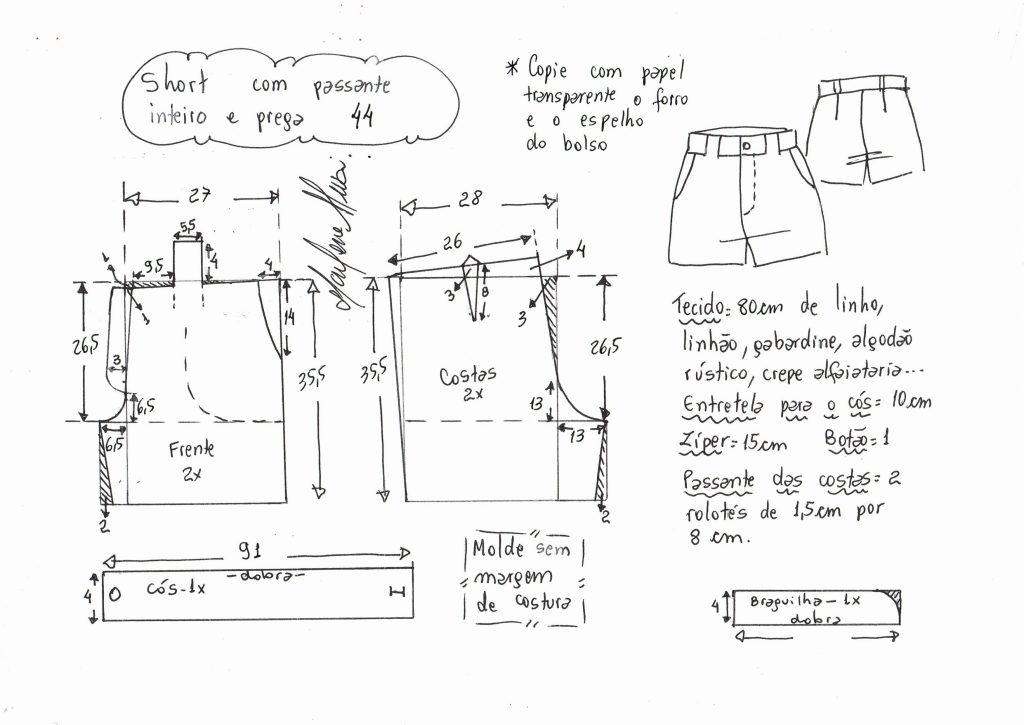 Short com passante
inteiro e prega 44
* Copie com papel
transparente o forro
e o espelho
do bolso
27
5,5
9,5
4
4
1
1
14
26,5
3
6,5
6,5
35,5
Frente
2x
2
28
26
4
3
8
3
35,5
26,5
Costas
2x
13
13
2
Tecido= 80cm de linho,
linhão, gabardine, algodão
rústico, crepe alfaiataria...
Entretela para o cós= 10cm
Zíper=15cm Botão=1
Passante das costas= 2
rolotés de 1,5cm por
8 cm.
91
4
Cós-1x -dobra-
Molde sem
margem
de costura
4
Braguilha- 1x
dobra